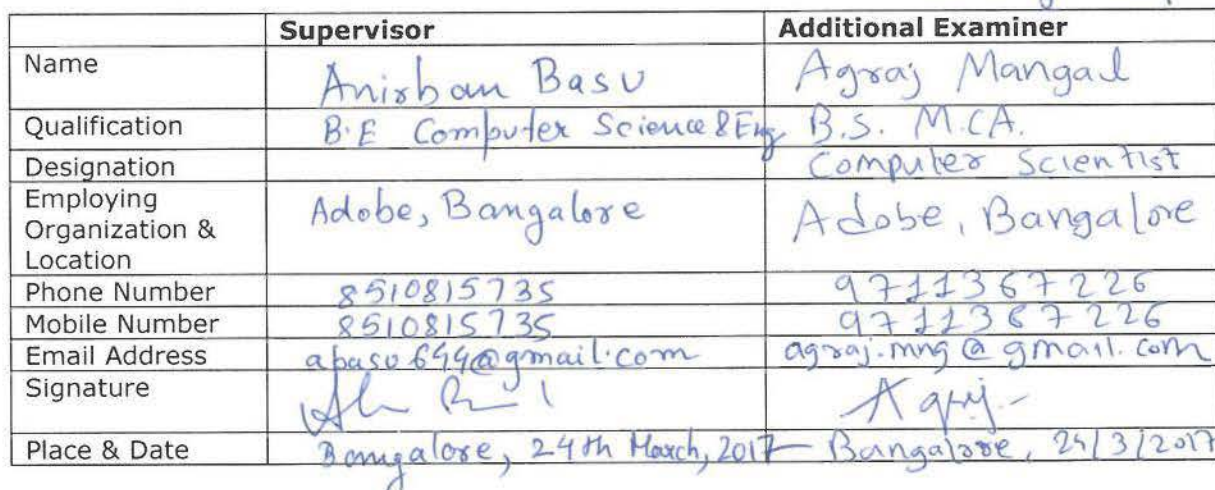 Supervisor Additional Examiner
Name Anirban Basu Agraj Mangal
Qualification B.E Computer Science & Eng B.S. M.CA.
Designation Computer Scientist
Employing
Organization & Adobe, Bangalore Adobe, Bangalore
Location
Phone Number 8510815735 9711367226
Mobile Number 8510815735 9711367226
Email Address abasu644@gmail.com agraj.mng@gmail.com
Signature Agraj
Place & Date Bangalore, 24th March, 2017 Bangalore, 24/3/2017